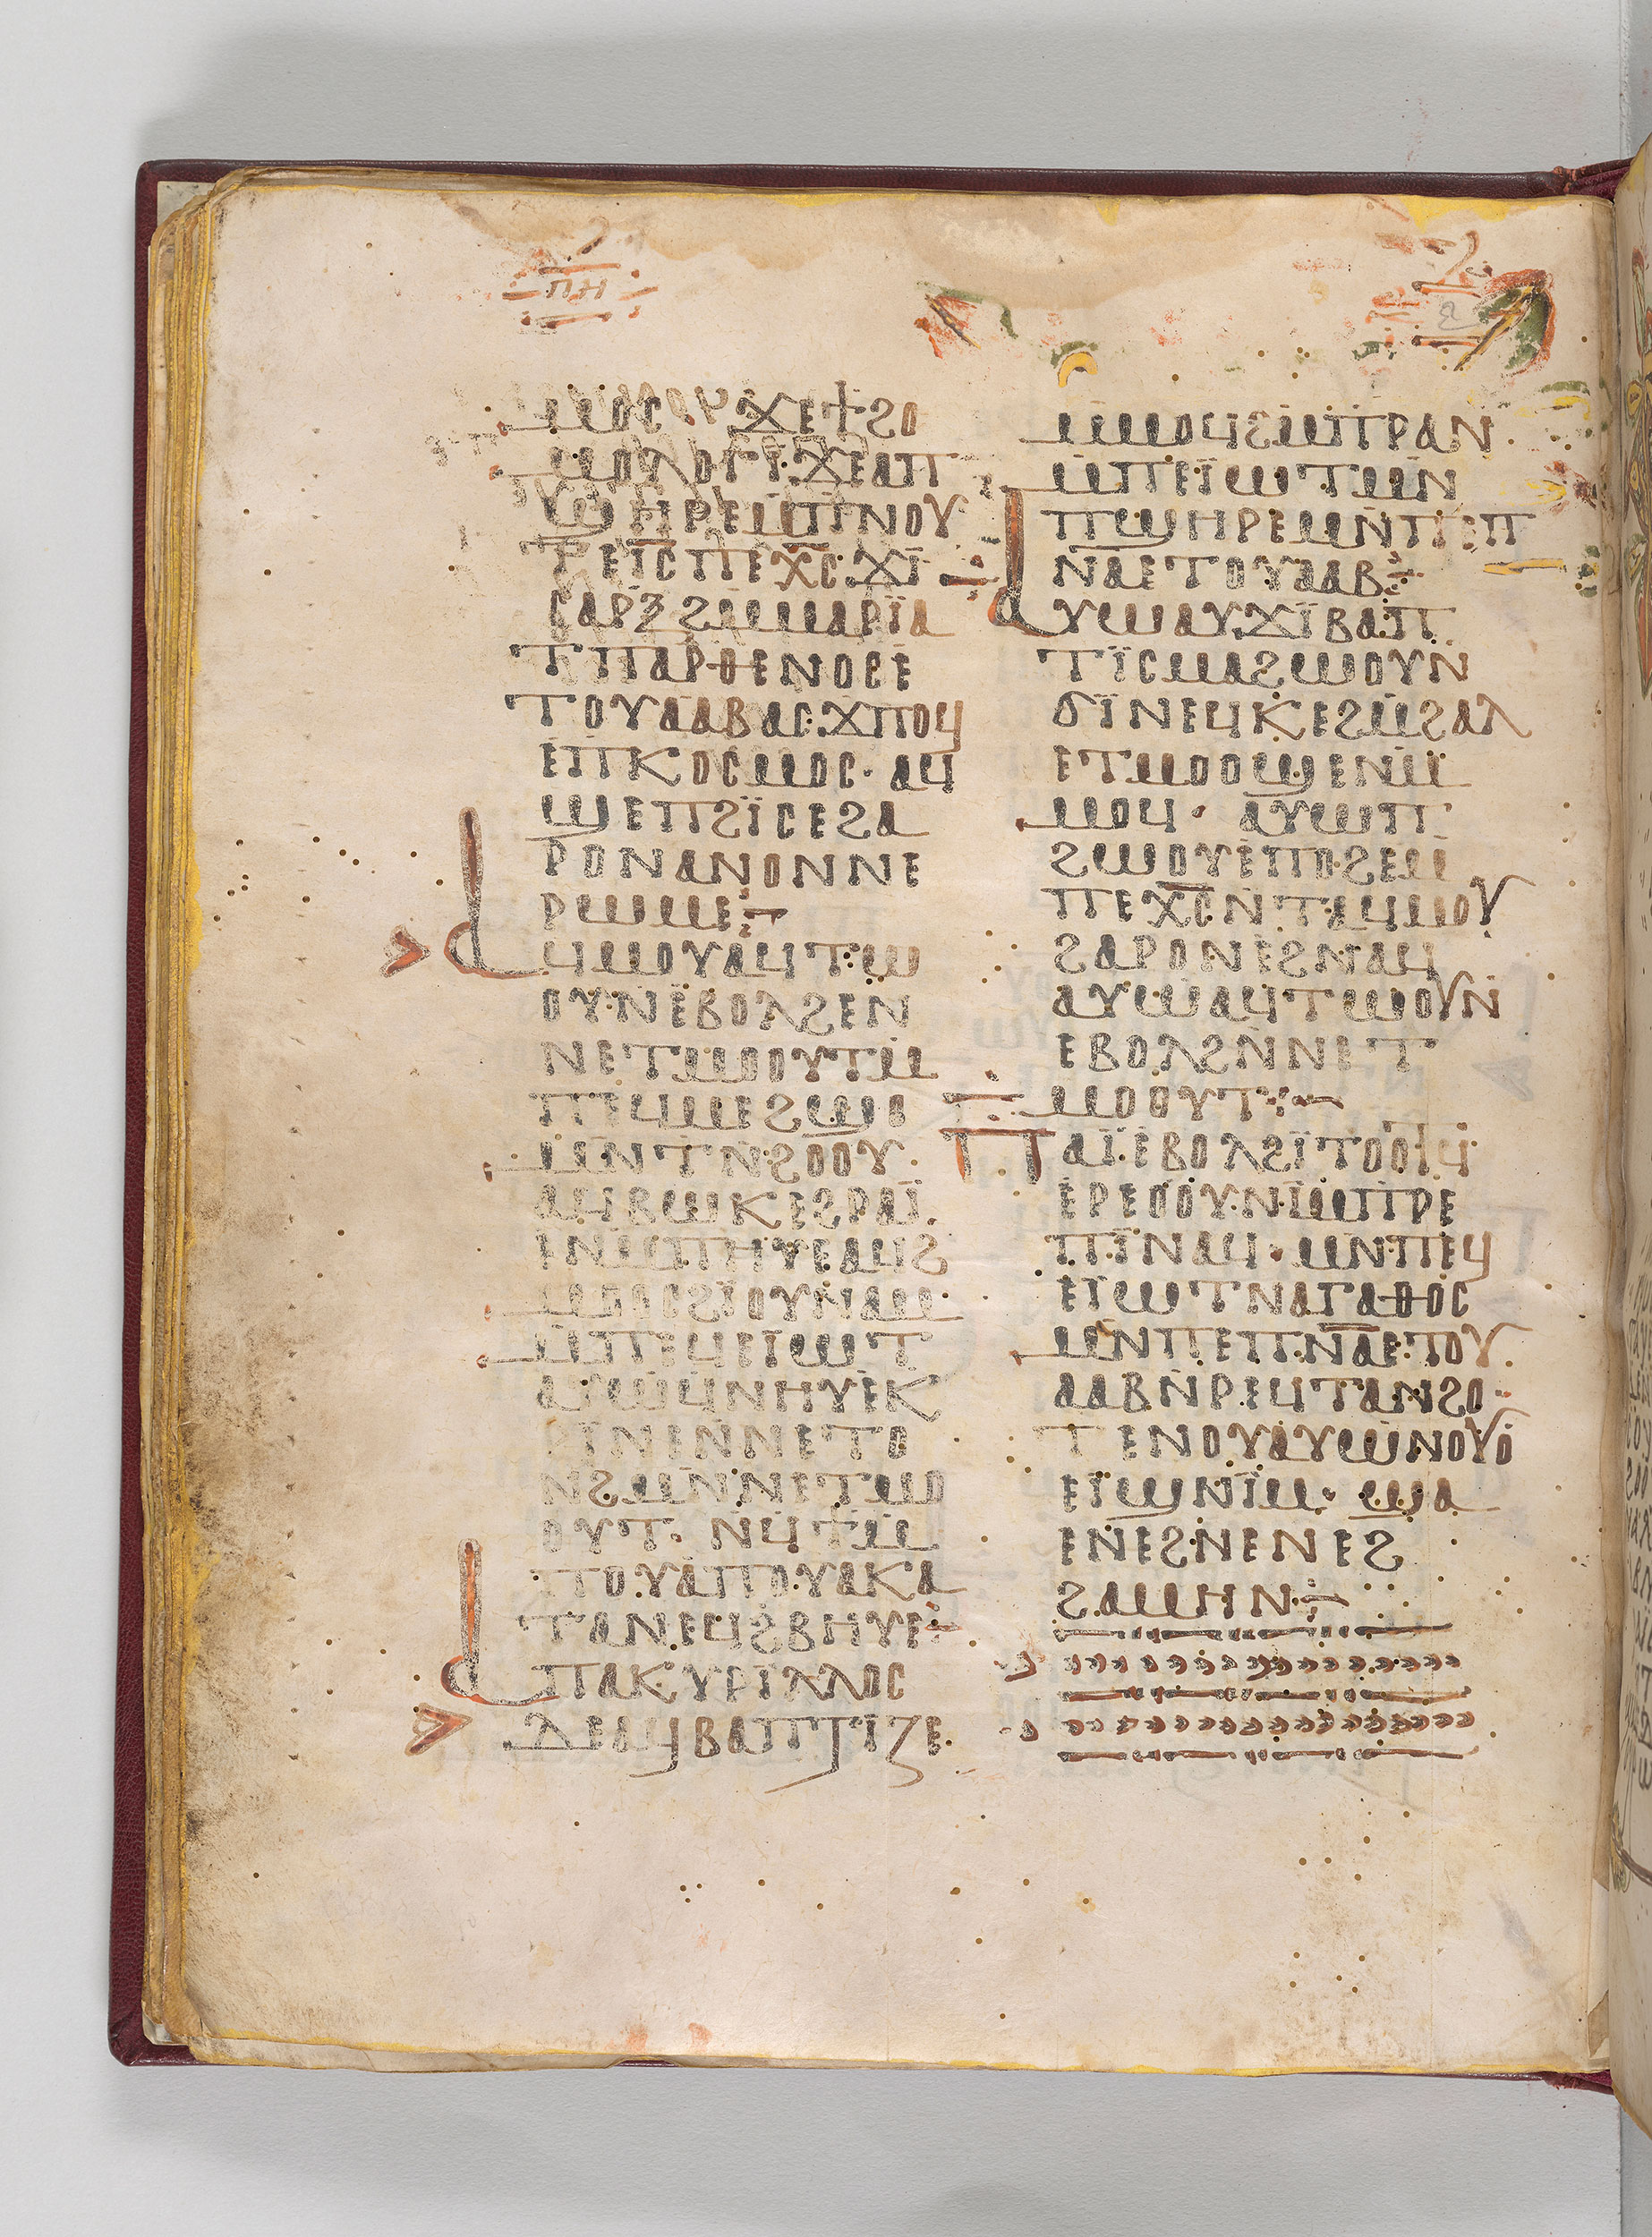 ⲡⲏ
ⲙⲟⲥ ϫⲉϯϩⲟ
ⲙⲟⲗⲟⲅⲓ ϫⲉⲁⲡ
ϣⲏⲣⲉⲙⲡⲛⲟⲩ
ⲧⲉⲓ̅ⲥ̅ ⲡⲉⲭ̅ⲥ̅ ϫⲓ
ⲥⲁⲣⲝϩⲙⲙⲁⲣⲓ̈ⲁ
ⲧⲡⲁⲣⲑⲉⲛⲟⲥⲉ
ⲧⲟⲩⲁⲁⲃⲁⲥϫⲡⲟϥ
ⲉⲡⲕⲟⲥⲙⲟⲥ· ⲁϥ
ϣⲉⲡϩⲓ̈ⲥⲉϩⲁ
ⲣⲟⲛⲁⲛⲟⲛⲛⲉ
ⲣⲱⲙⲉ
ⲁϥⲙⲟⲩⲁϥⲧⲱ
ⲟⲩⲛⲉ̇ⲃⲟⲗϩⲉⲛ
ⲛⲉⲧⲙⲟⲟⲩⲧⲙ
ⲡⲉϥⲙⲉϩϣⲟ
ⲙⲛⲧⲛ̇ϩⲟⲟⲩ·
ⲁϥⲃⲱⲕⲉϩⲣⲁⲓ̈
ⲉⲛⲙⲡⲏⲩⲉⲁϥϩ
ⲙⲟⲟⲥϩⲓ̈ⲟⲩⲛⲁⲙ
ⲙ̇ⲡⲉϥⲉⲓ̈ⲱⲧ
ⲁⲩⲱϥⲛⲏⲩⲉ̇ⲕ
ⲣⲓ̈ⲛⲉⲛ̇ⲛⲉⲧⲟ
ⲛϩⲙⲛ̇ⲛⲉⲧⲙⲟ
ⲟⲩⲧ· ⲛ̇ϥϯⲙ
ⲡⲟⲩⲁⲡⲟⲩⲁⲕⲁ
ⲧⲁⲛⲉϥϩⲃⲏⲩⲉ
ⲁⲡⲁⲕⲩⲣⲓ̈ⲗⲗⲟⲥ
ⲇⲉⲁϥⲃⲁⲡⲧⲓⲍⲉ·
ⲙ̇ⲙⲟϥϩⲙⲡⲣⲁⲛ
ⲙ̇ⲡⲉⲓ̈ⲱⲧⲙⲛ
ⲡϣⲏⲣⲉⲙⲛⲡⲉⲡ
ⲛ̅ⲁ̅ⲉⲧⲟⲩⲁⲁⲃ
ⲁⲩⲱⲁⲩϫⲓ̈ⲃⲁⲡ
ⲧⲓ̈ⲥⲙⲁϩⲱⲟⲩⲛ
ϭⲓ̈ⲛⲉϥⲕⲉϩⲙ̇ϩⲁⲗ
ⲉⲧⲙⲟⲟϣⲉⲛⲙ̇
ⲙⲟϥ· ⲁⲩⲱⲡ
ϩⲱⲟⲩⲉ̇ⲡⲟϩⲉⲙ
ⲡⲉⲭ̅ⲥ̅ⲛ̇ⲧⲁϥⲙⲟⲩ
ϩⲁⲣⲟⲛⲉϩⲛⲁϥ
ⲁⲩⲱⲁϥⲧⲱⲟⲩⲛ
ⲉⲃⲟⲗϩⲛ̇ⲛⲉⲧ
ⲙⲟⲟⲩⲧ
ⲡⲁⲓ̈ⲉ̇ⲃⲟⲗϩⲓ̈ⲧⲟⲟⲧϥ
ⲉ̇ⲣⲉⲟⲟⲩⲛⲓ̈ⲙⲡⲣⲉ
ⲡⲓ̈ⲛⲁϥ· ⲙⲛⲡⲉϥ
ⲉⲓ̈ⲱⲧⲛⲁⲅⲁⲑⲟⲥ
ⲙⲛⲡⲉⲡⲛ̅ⲁ̅ⲉⲧⲟⲩ
ⲁⲁⲃⲛ̇ⲣⲉϥⲧⲁⲛϩⲟ
ⲧⲉⲛⲟⲩⲁⲩⲱⲛⲟⲩⲟ
ⲉⲓ̈ϣⲛⲓ̈ⲙ· ϣⲁ
ⲉⲛⲉϩⲛ̇ⲉⲛⲉϩ
ϩⲁⲙⲏⲛ